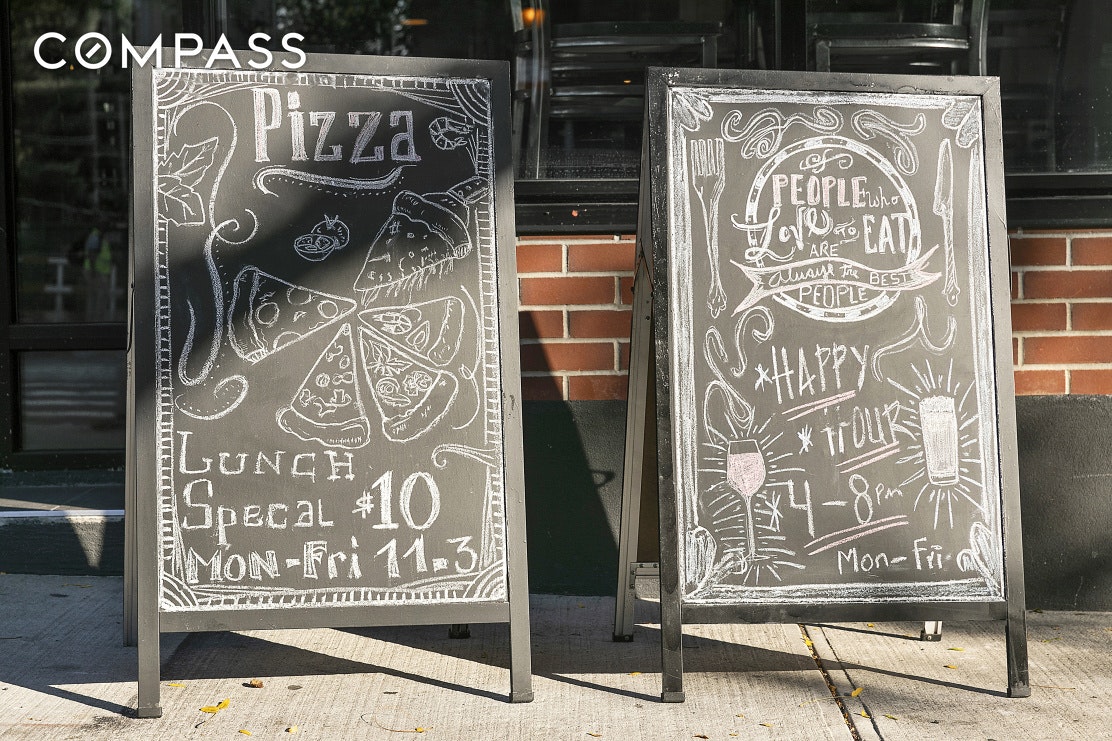 COMPASS
Pizza
Lunch
Specal $10
Mon-Fri 11-3
PEOPLE who
Love to EAT
ARE
always the BEST
PEOPLE
*HAPPY
*HOUR
*4-8pm
Mon-Fri